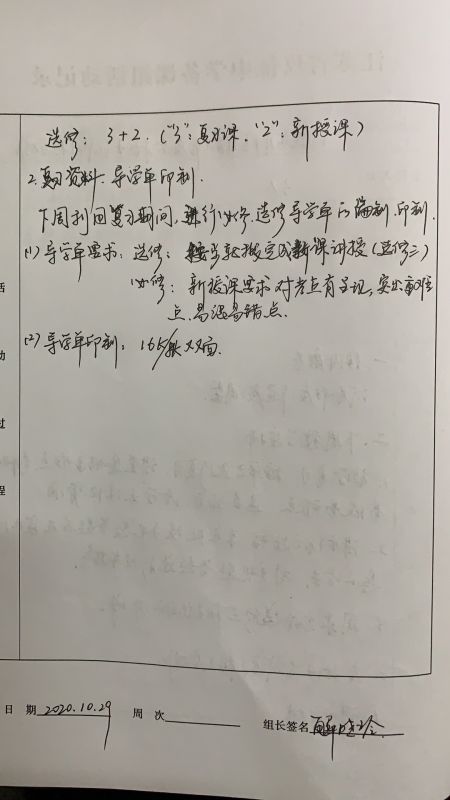 选修：3+2.（"3"：复习课."2"：新授课）
2.复习资料.导学单印制.
下周利回复习期间，进行必修.选修导学单的编制.印制.
(1)导学单要求：选修：按步就搬完成新课讲授（选修三）
必修：新授课要求对考点有呈现，突出重难
点、易混易错点.
(2)导学单印制：165 双面.
活
动
过
程
日 期 2020.10.29 周 次 组长签名 解